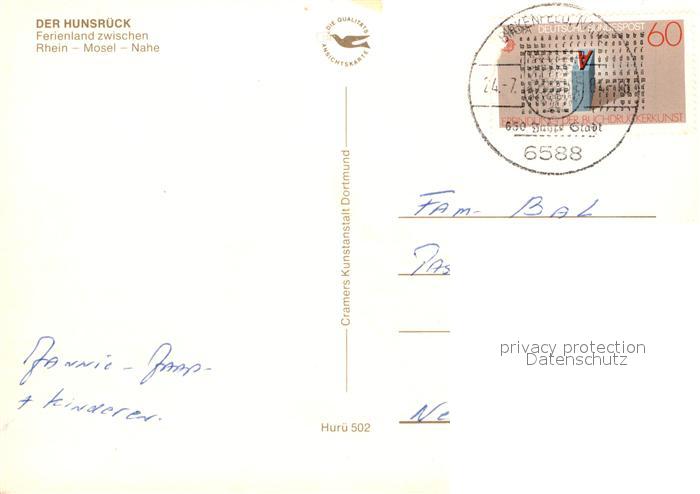 DER HUNSRÜCK
Ferienland zwischen
Rhein – Mosel – Nahe
DIE QUALITÄTS
ANSICHTSKARTE
BIRKENFELD, NAHE
DEUTSCHE BUNDESPOST
60
A
24.-7.
ERFINDUNG DER BUCHDRUCKERKUNST
650 Jahre Stadt
6588
Cramers Kunstanstalt Dortmund
FAM- BAL
PAS
privacy protection
Datenschutz
Ne
Jannie - Jaap-
+ kinderen.
Hurü 502